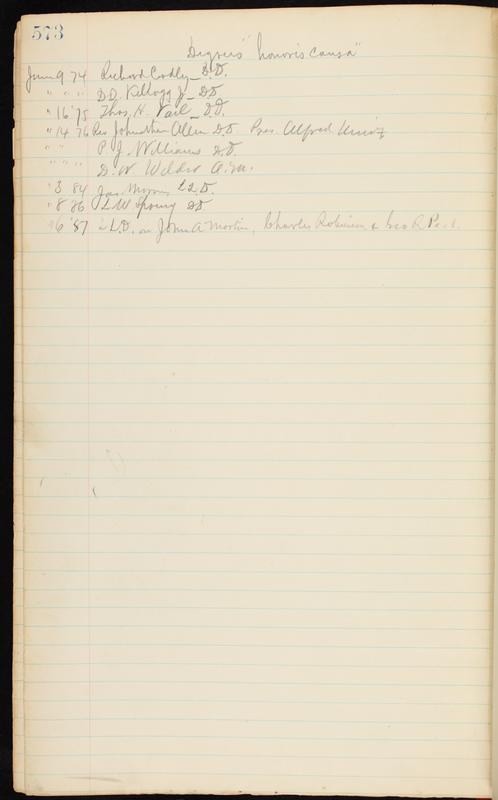 573
Degrees "honoris causa"
June 9 74 Richard Cordly _ D.D.
" " " " D.D. Kellogg Jr _ D.D
" 16 '75 Thos. H. Vail _ D.D.
" 14 76 Rev Johnathan Allen D.D. Pres. Alfred Univ
" " P. J. Williams D.D.
" " " D. W. Wilder A.M.
" 3 84 Jas. Morris L.L.D.
" 8 '86 L W Spring D.D
" 6 '87 L.D. on John A Martin, Charles Robinson & Geo R.